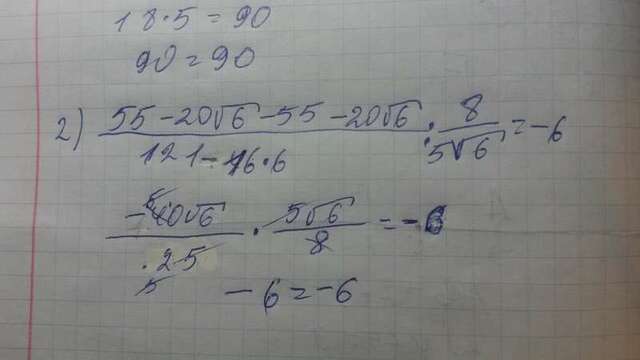 18·5=90
90=90
2) (55-20√6-55-20√6)/(121-16·6) : 8/(5√6) = -6
(-40√6)/(25) · (5√6)/8 = -6
5 5
-6=-6